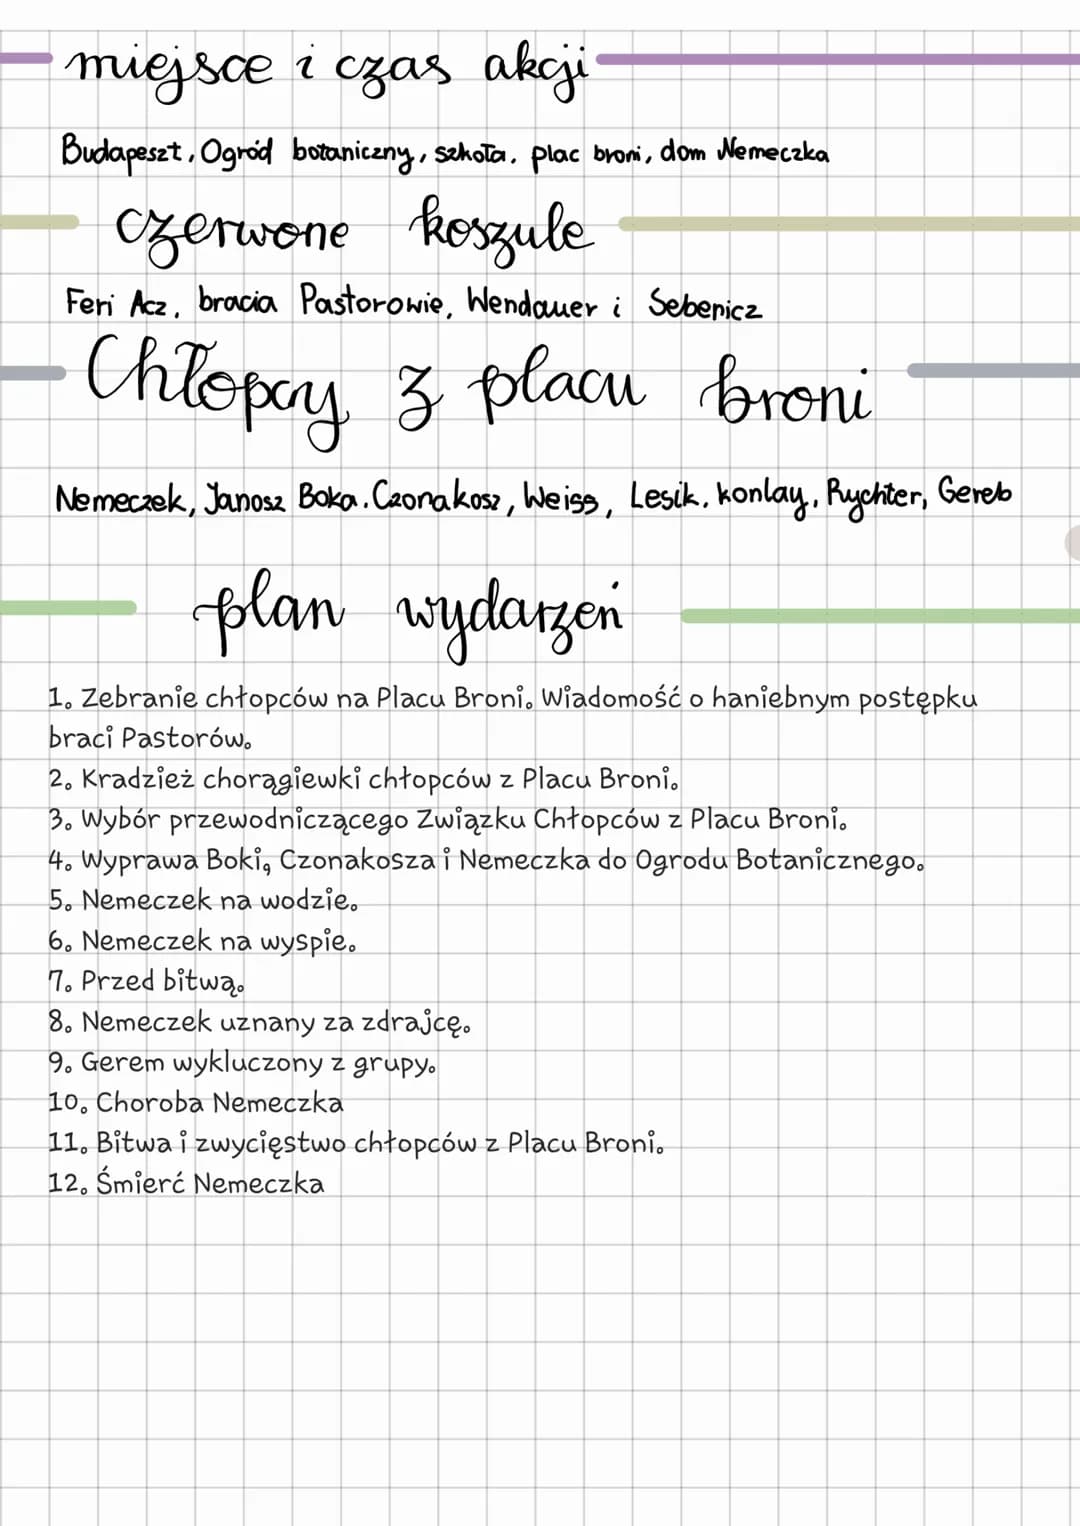 miejsce i czas akcji
Budapeszt, Ogród botaniczny, szkoła, plac broni, dom Nemeczka
czerwone koszule
Feri Acz, bracia Pastorowie, Wendauer i Sebenicz
Chłopcy z placu broni
Nemeczek, Janosz Boka. Czonakosz, Weiss, Lesik, konlay, Rychter, Gereb
plan wydarzeń
1. Zebranie chłopców na Placu Broni. Wiadomość o haniebnym postępku
braci Pastorów.
2. Kradzież chorągiewki chłopców z Placu Broni.
3. Wybór przewodniczącego Związku Chłopców z Placu Broni.
4. Wyprawa Boki, Czonakosza i Nemeczka do Ogrodu Botanicznego.
5. Nemeczek na wodzie.
6. Nemeczek na wyspie.
7. Przed bitwą.
8. Nemeczek uznany za zdrajcę.
9. Gerem wykluczony z grupy.
10. Choroba Nemeczka
11. Bitwa i zwycięstwo chłopców z Placu Broni.
12. Śmierć Nemeczka